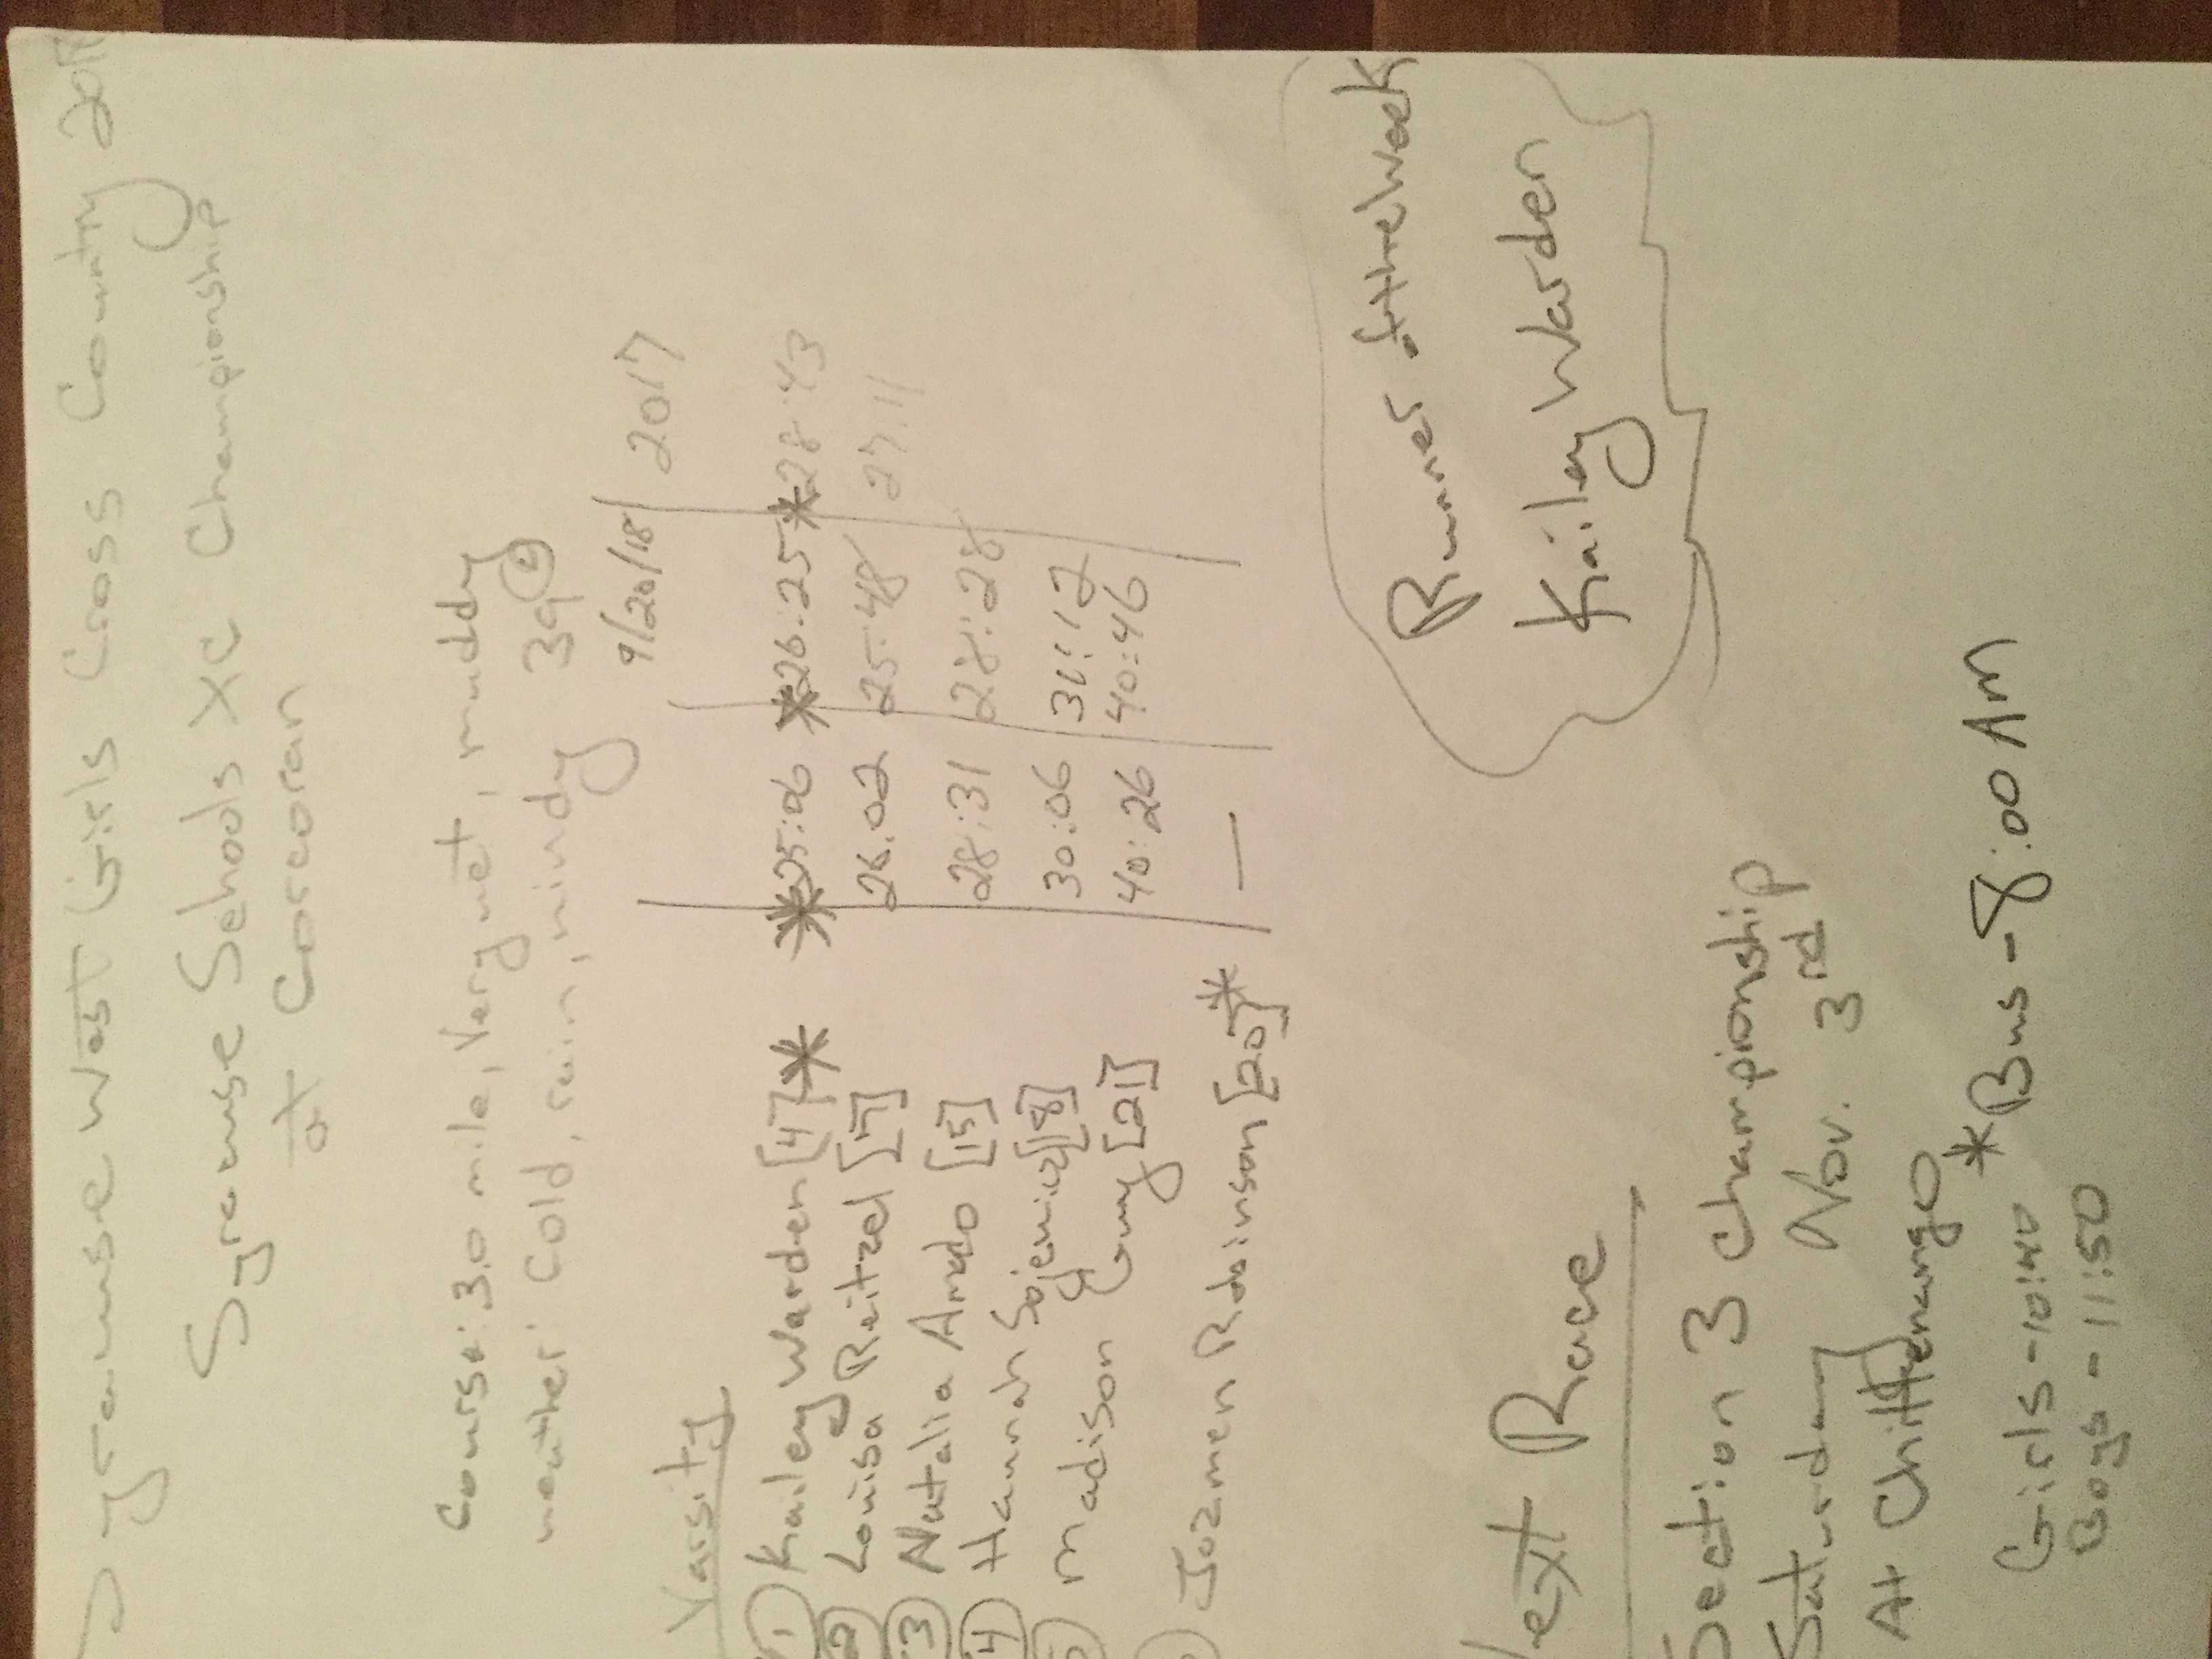 Syracuse West Girls Cross Country 2018
Syracuse Schools XC Championship
at Corcoran
Course: 3.0 mile, Very wet, muddy
weather: Cold, rain, windy 39°
9/20/18 2017
Varsity
1 Kailey Warden [4]* *25:06 *26:25 *28:43
2 Louisa Reitzel [7] 26.02 25:48 27.11
3 Natalia Amado [15] 28:31 28:28
4 Hannah [18] 30:06 31:12
5 Madison Guy [21] 40:26 40:46
Jozmen Robinson [20]* —
Runner of the Week
Kailey Warden
Next Race
Section 3 Championship
Saturday Nov. 3rd
At Chittenango
*Bus - 8:00 AM
Girls - 10:40
Boys - 11:50